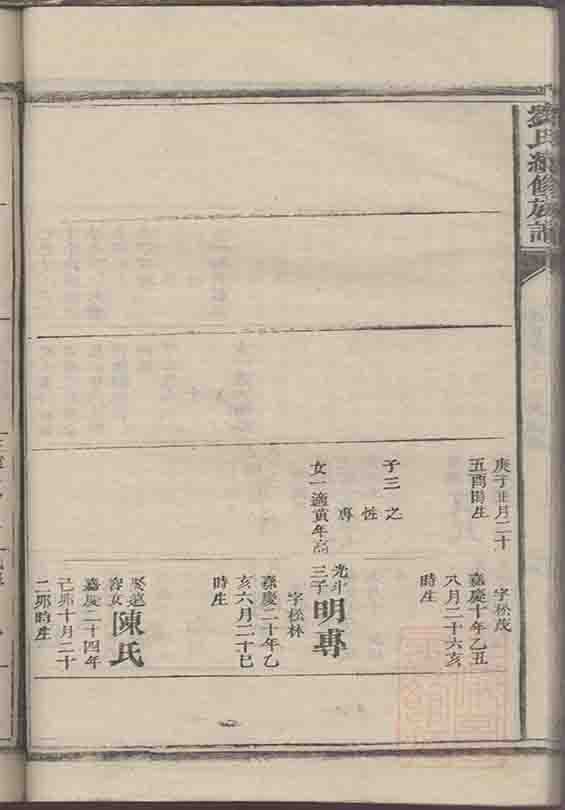 劉氏續修族譜
庚子正月二十
五酉時生
子三之
性
專
女一適黃年高
字松茂
嘉慶十年乙丑
八月二十六亥
時生
光斗
三子
明專
字松林
嘉慶二十年乙
亥六月二十巳
時生
娶
女
陳氏
嘉慶二十四年
己卯十月二十
二卯時生